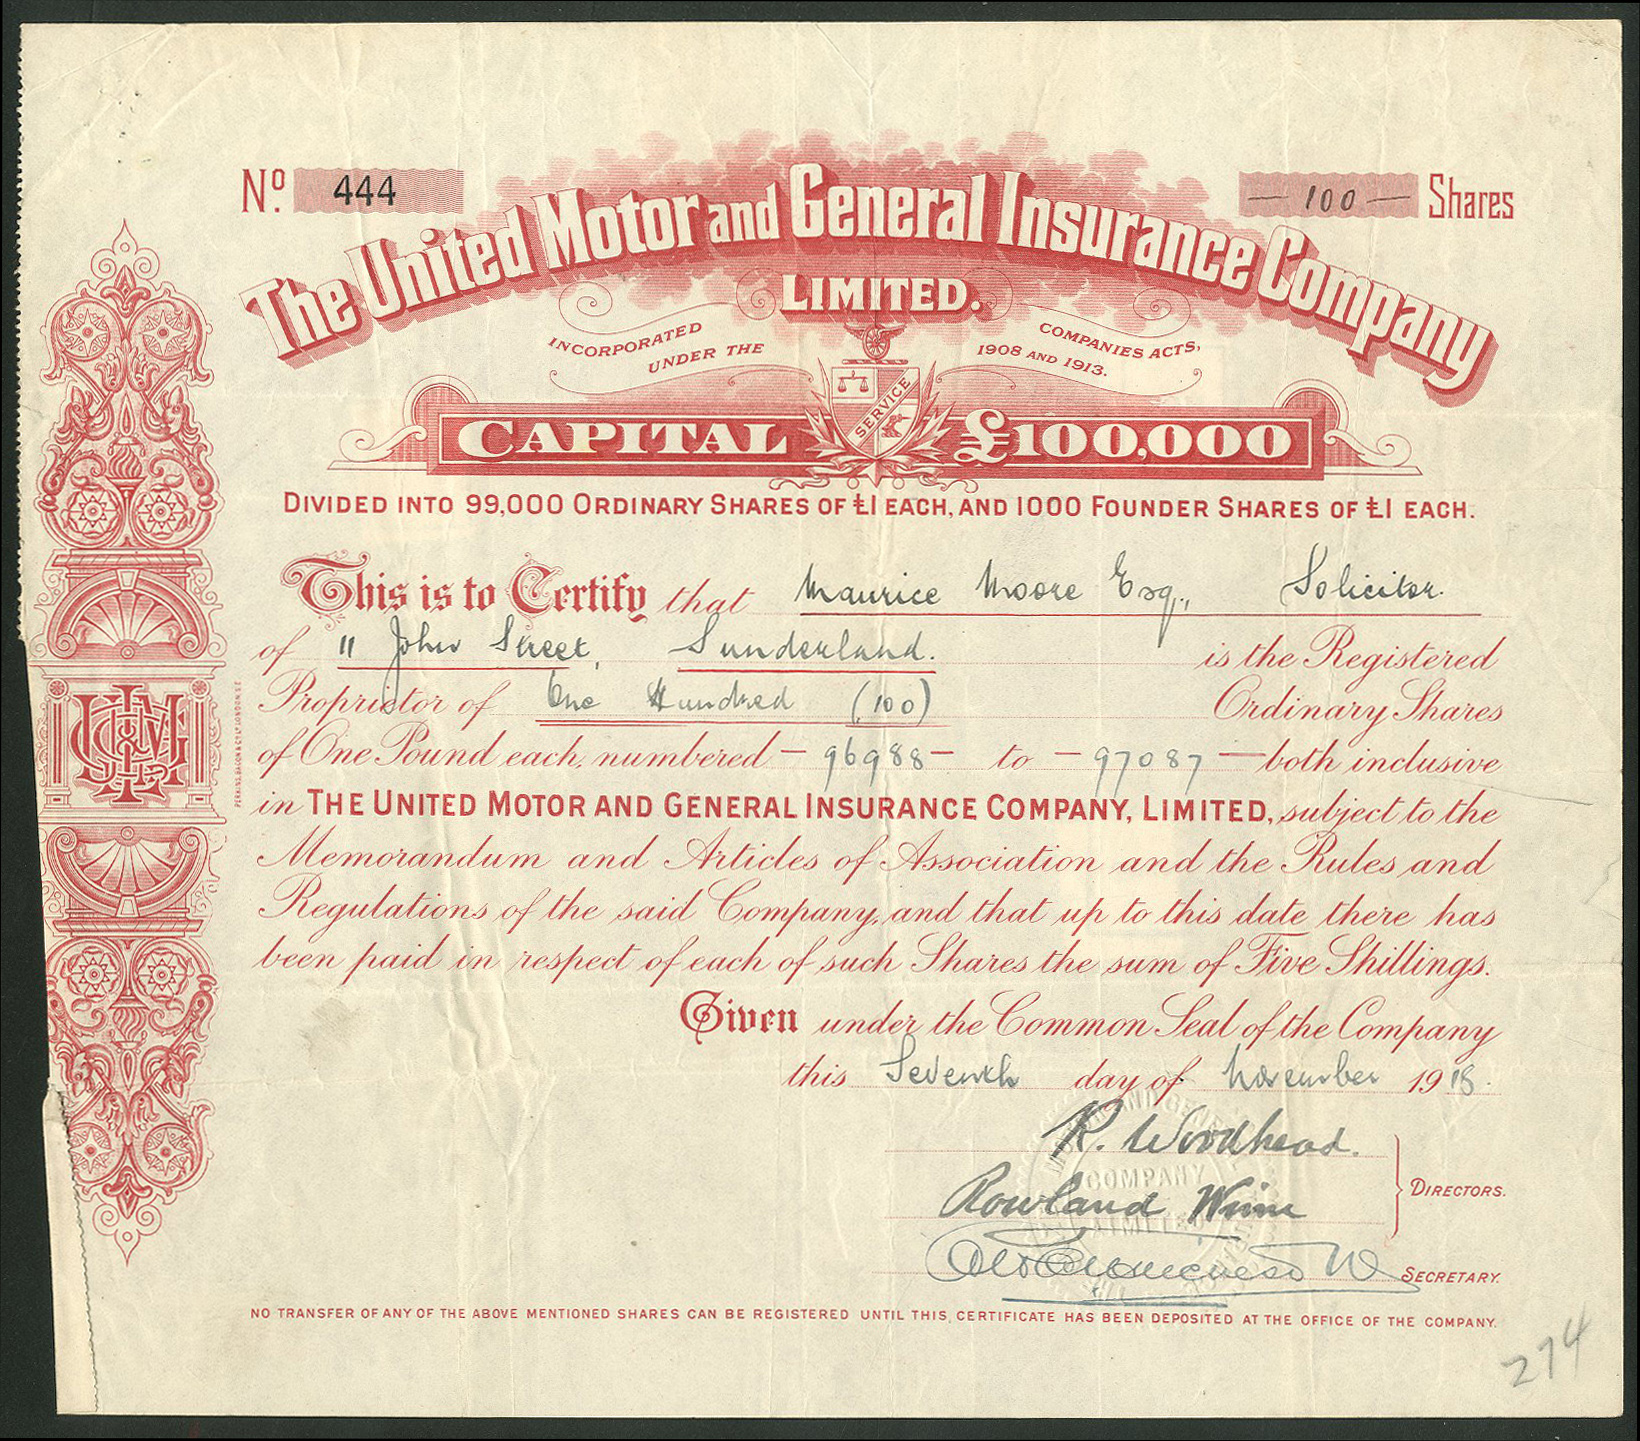 No. 444
— 100 — Shares
The United Motor and General Insurance Company
LIMITED.
INCORPORATED UNDER THE COMPANIES ACTS, 1908 AND 1913.
SERVICE
CAPITAL £100,000
DIVIDED INTO 99,000 ORDINARY SHARES OF £1 EACH, AND 1000 FOUNDER SHARES OF £1 EACH.
This is to Certify that Maurice Moore Esq., Solicitor.
of 11 John Street, Sunderland. is the Registered
Proprietor of One Hundred (100) Ordinary Shares
of One Pound each, numbered — 96988 — to — 97087 — both inclusive
in THE UNITED MOTOR AND GENERAL INSURANCE COMPANY, LIMITED, subject to the
Memorandum and Articles of Association and the Rules and
Regulations of the said Company, and that up to this date there has
been paid in respect of each of such Shares the sum of Five Shillings.
Given under the Common Seal of the Company
this Seventh day of November 1918.
R. Woodhead.
Rowland Winn
DIRECTORS.
SECRETARY.
NO TRANSFER OF ANY OF THE ABOVE MENTIONED SHARES CAN BE REGISTERED UNTIL THIS CERTIFICATE HAS BEEN DEPOSITED AT THE OFFICE OF THE COMPANY.
274
COMPANY
LIMITED